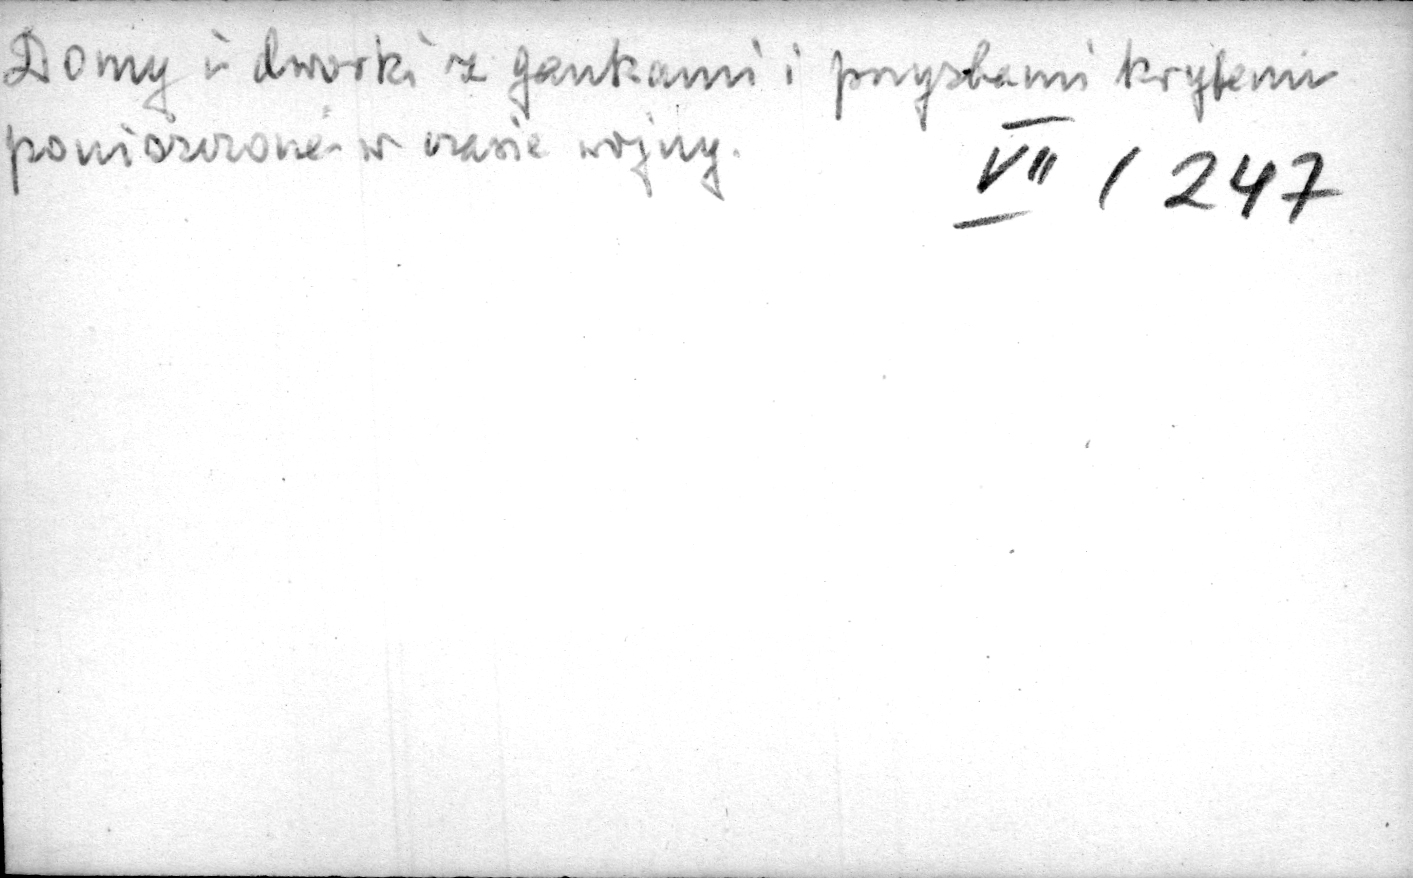 Domy i dworki z gankami i przyzbami krytemi
poniszczone w czasie wojny.
VII / 247